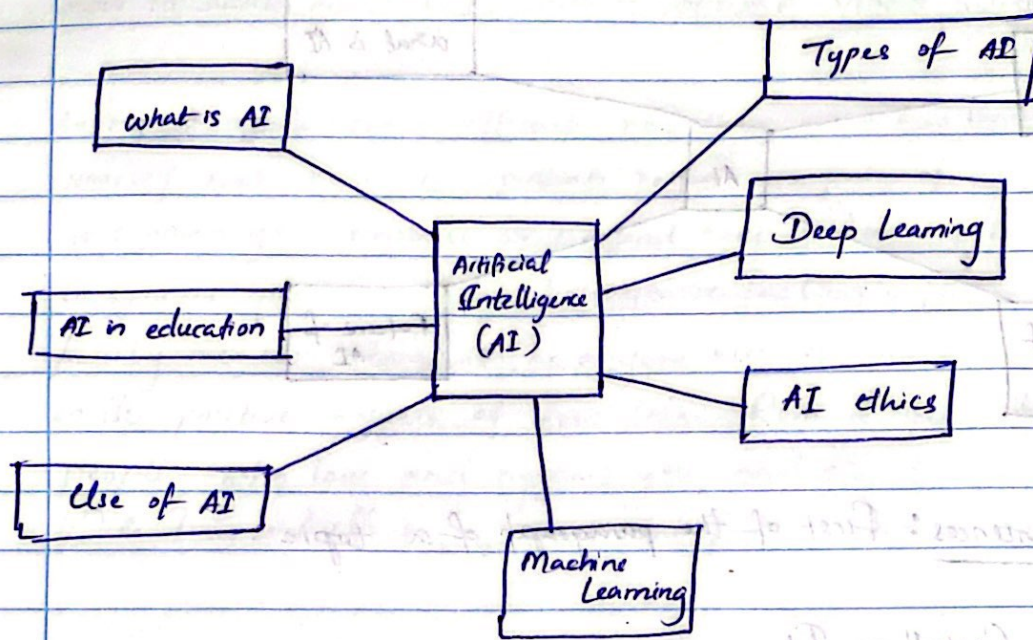 Types of AI
what is AI
Deep Learning
Artificial
Intelligence
(AI)
AI in education
AI ethics
Use of AI
Machine
Learning